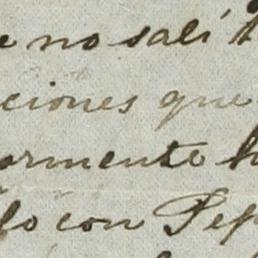 e no salí
ciones que
armente h
lo con Pep